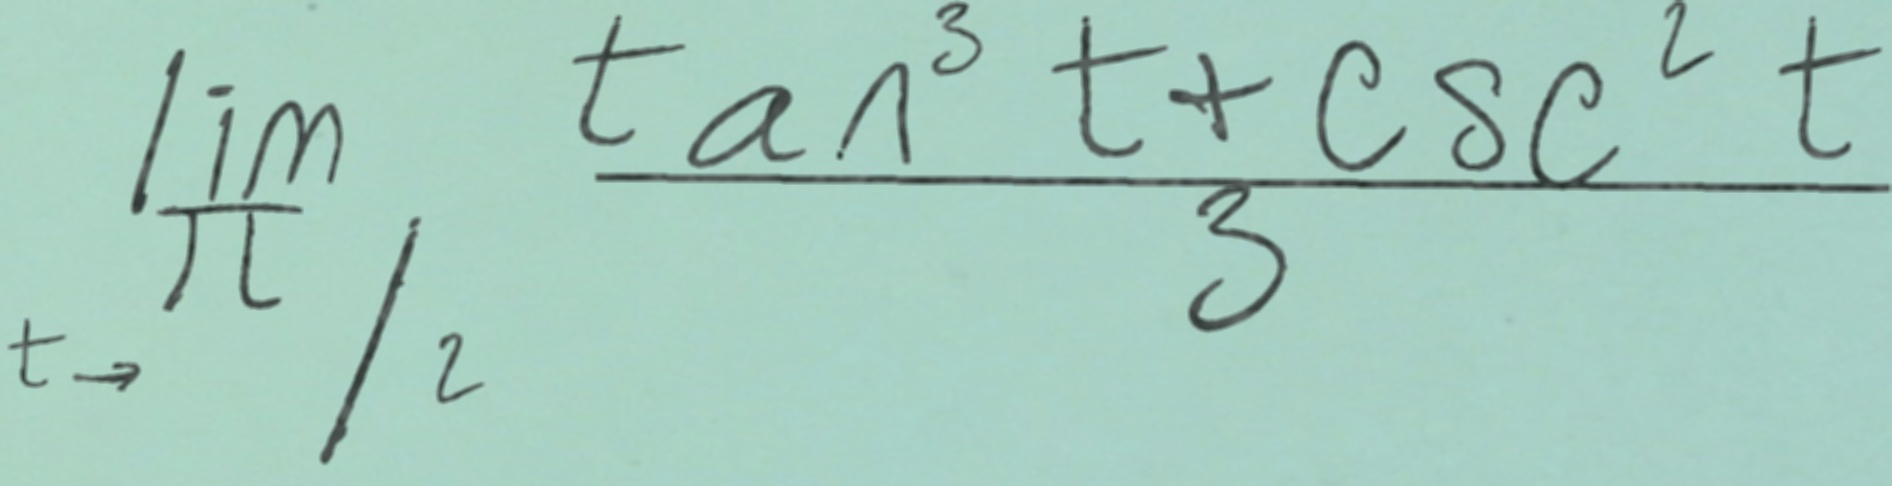 \lim_{t \to \pi/2} \frac{\tan^3 t + \csc^2 t}{3}